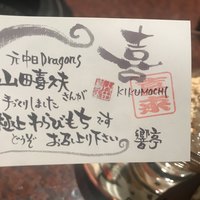 喜
KIKUMOCHI
元中日Dragons
山田喜久夫さんが
手づくりしました
極上わらびもちです
どうぞお召し上り下さい
響亭